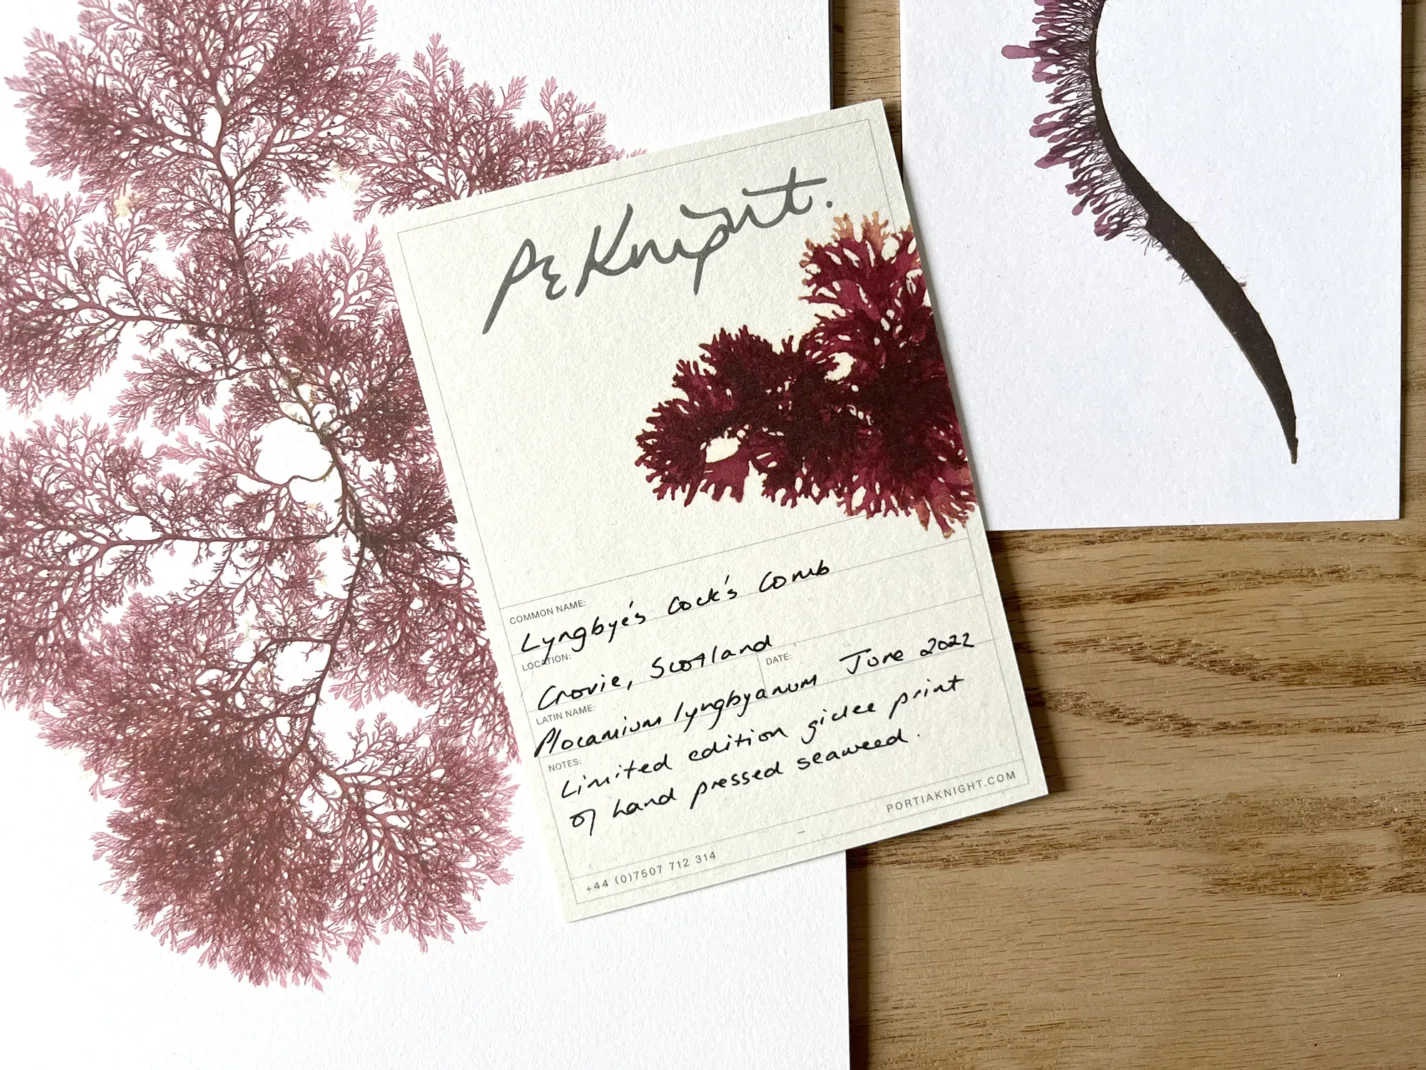 PE Knight.
COMMON NAME:
Lyngbye's Cock's Comb
LOCATION:
Crovie, Scotland
DATE:
June 2022
LATIN NAME:
Plocamium lyngbyanum
NOTES:
Limited edition giclee print
of hand pressed seaweed.
PORTIAKNIGHT.COM
+44 (0)7507 712 314